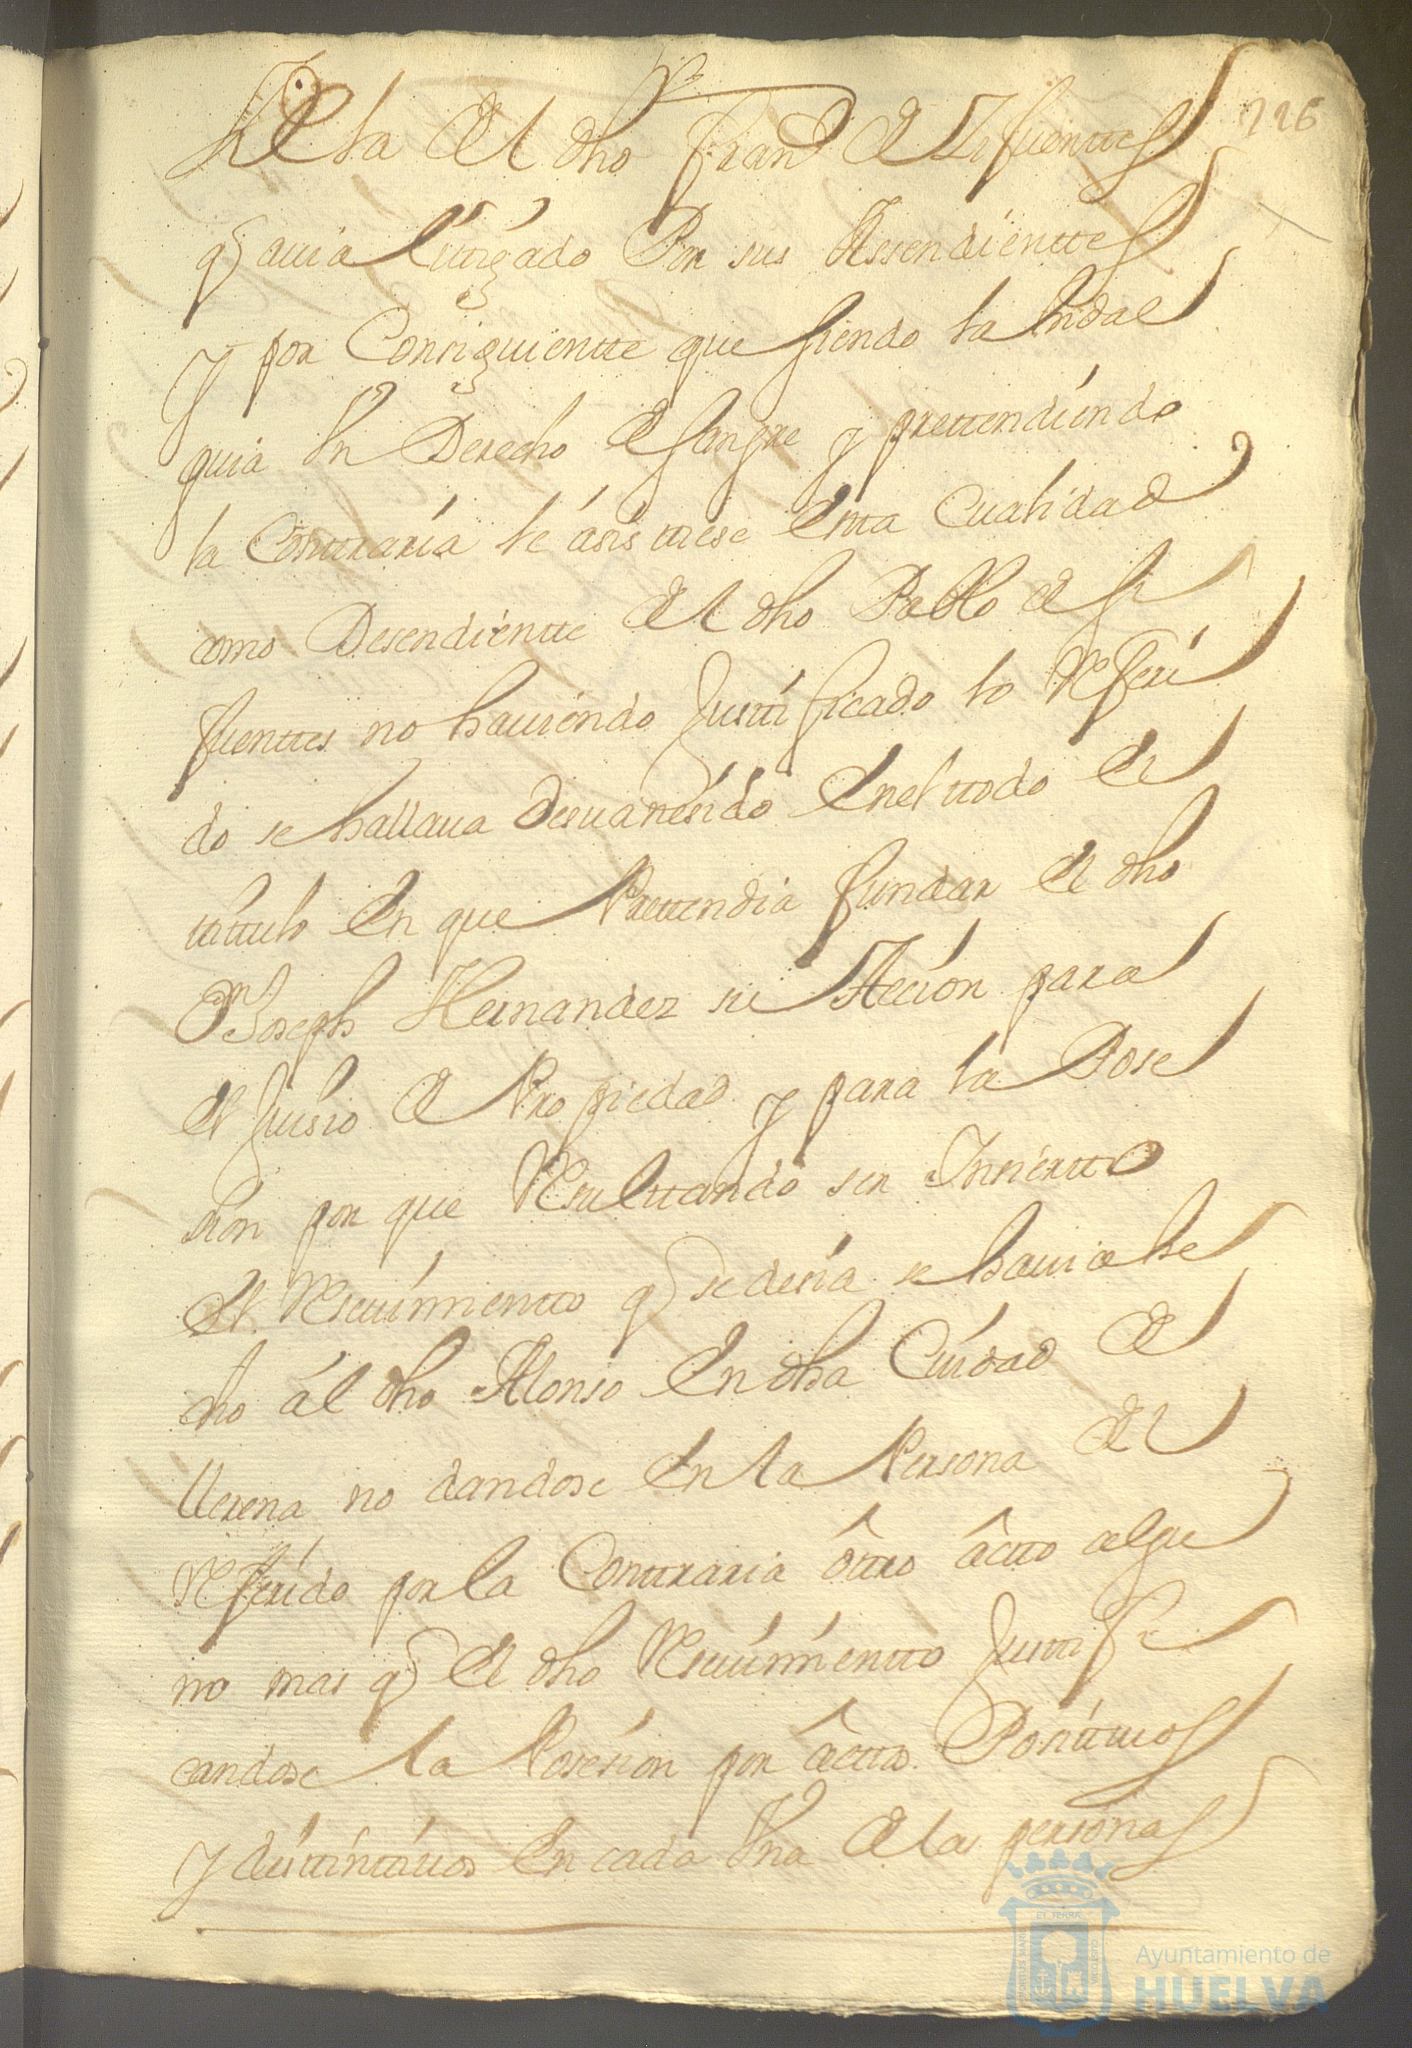 226
del dho Fran.co de Zifuenttes
q avia litigado Por sus Assendienttes
y por Consiguientte que siendo la hidal
guia Un Derecho de sangre y prettendiendo
la Conttraria le asisttiese estta Cualidad
como Desendientte del dho Pablo de Si
fuenttes no haviendo Justtificado lo Referi
do se hallava Desvanesido en el ttodo el
tittulo en que Prettendia fundar el dho
Dn Joseph Hernandez su Accion para
el Juisio de Propiedad y para la Pose
sion por que Resulttando ser Insiertto
el Resevimientto q se desia se havia he
cho al dho Alonso en dha Ciudad de
llerena no dandose en la Persona del
Referido por la Conttraria ottro actto algu
no mas q el dho Resevimientto Justtifi
candose la Posesion por acttos Posittivos
y disttinttivos en cada Una de las personas
Ayuntamiento de
HUELVA